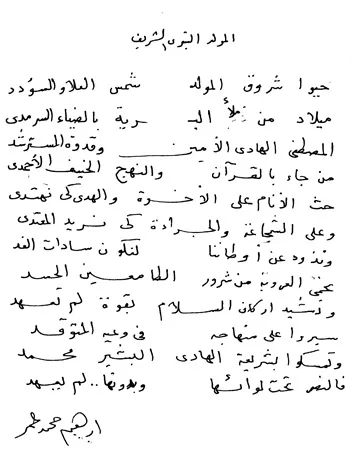 المولد النبوى الشريف
حيوا شروق المولد شمس العلا والسؤدد
ميلاد من ملأ البـ ـرية بالضياء السرمدى
المصطفى الهادى الأميـن وقدوة المسترشد
من جاء بالقرآن والنهج الحنيف الأحمدى
حث الأنام على الأخوة والهدى كى نهتدى
وعلى الشجاعة والجراءة كى نريد المعتدى
ونذود عن أوطاننا لنكون سادات الغد
نحمى العروبة من شرور الطامعين الحسد
ونشيد اركان السلام بقوة لم تعهد
سيروا على منهاجه فى وعيه المتوقد
وتمسكوا بشريعة الهادى البشير محمد
فالنصر تحت لوائها وبدونها.. لم يعهد
ابراهيم محمد